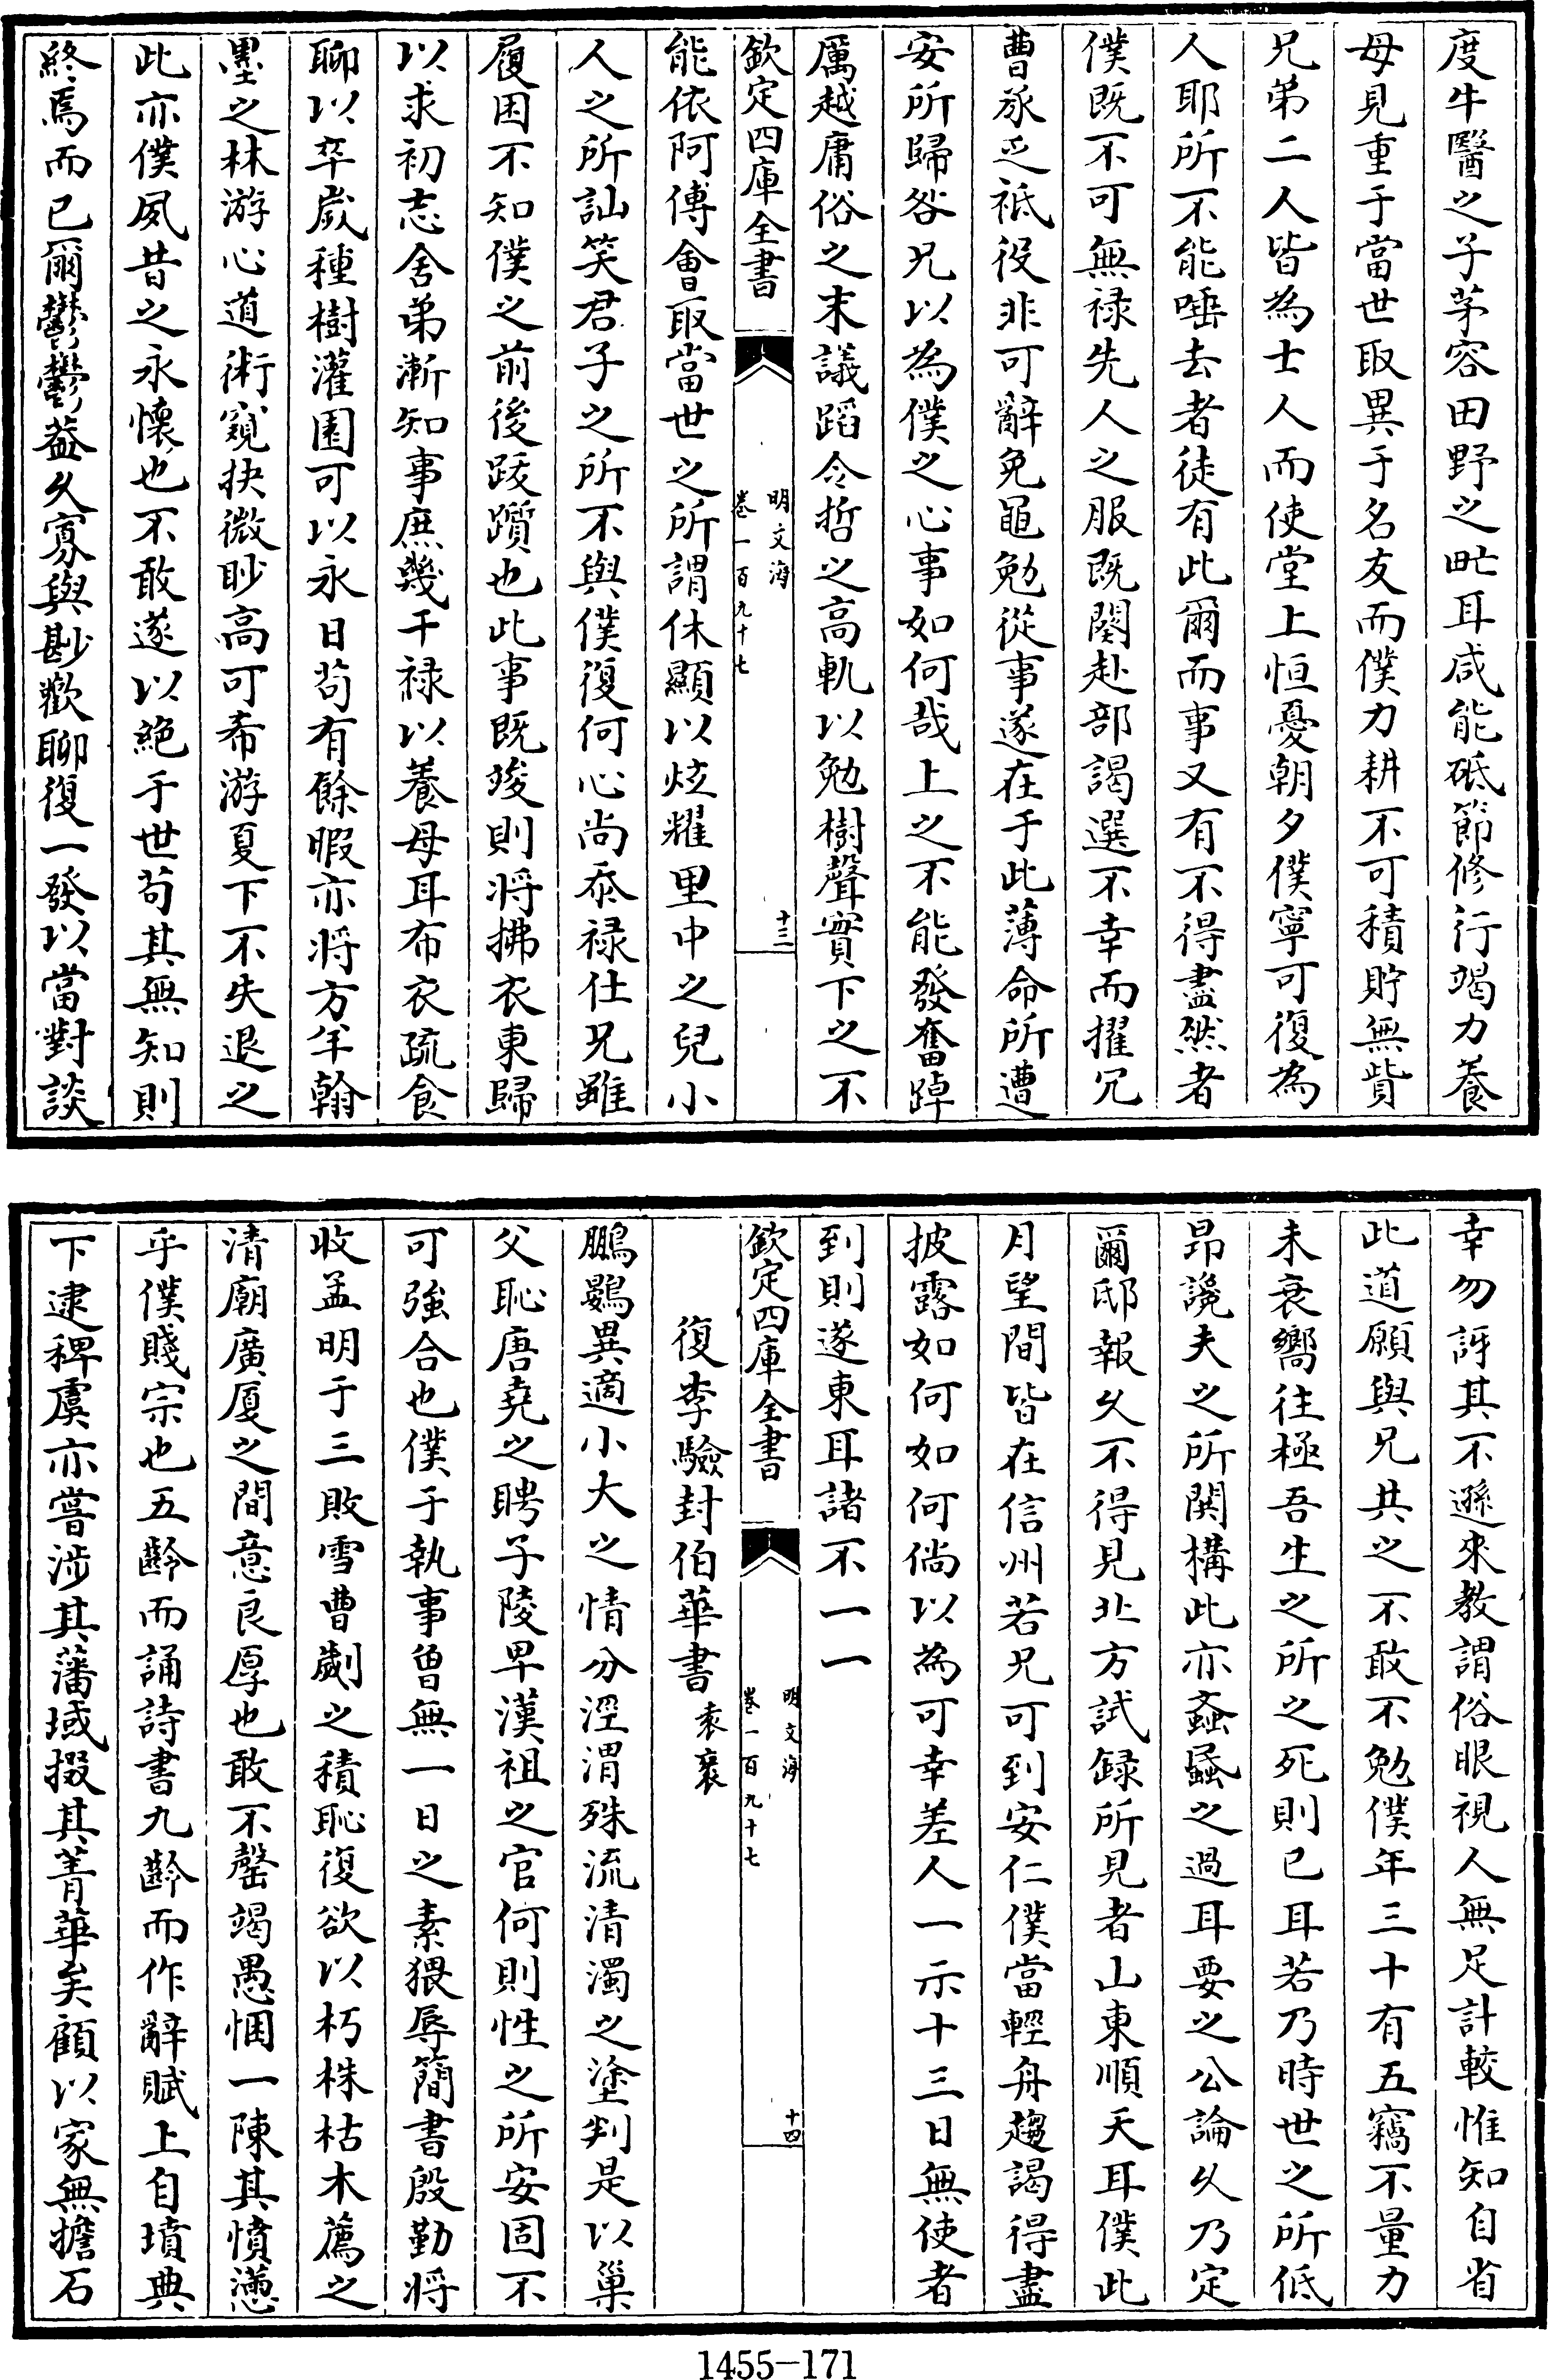 度牛醫之子茅容田野之甿耳咸能砥節修行竭力養
母見重于當世取異于名友而僕力耕不可積貯無貲
兄弟二人皆為士人而使堂上恒憂朝夕僕寧可復為
人耶所不能唾去者徒有此爾而事又有不得盡然者
僕既不可無祿先人之服既闋赴部謁選不幸而擢冗
曹承乏祗役非可辭免黽勉從事遂在于此薄命所遭
安所歸咎兄以為僕之心事如何哉上之不能發奮踔
厲越庸俗之末議蹈令哲之高軌以勉樹聲實下之不
欽定四庫全書
明文海
卷一百九十七
十三
能依阿傅會取當世之所謂休顯以炫耀里中之兒小
人之所訕笑君子之所不與僕復何心尚忝祿仕兄雖
履困不知僕之前後跋躓也此事既竣則将拂衣東歸
以求初志舍弟漸知事庶幾干祿以養母耳布衣疏食
聊以卒歲種樹灌園可以永日苟有餘暇亦将方羊翰
墨之林游心道術窺抉微眇高可希游夏下不失退之
此亦僕夙昔之永懷也不敢遂以絶于世苟其無知則
終焉而已爾鬱鬱益久寡與尠歡聊復一發以當對談
幸勿訝其不遜來教謂俗眼視人無足計較惟知自省
此道願與兄共之不敢不勉僕年三十有五竊不量力
未衰嚮往極吾生之所之死則已耳若乃時世之所低
昂讒夫之所関構此亦螡䖟之過耳要之公論久乃定
爾邸報久不得見北方試録所見者山東順天耳僕此
月望間皆在信州若兄可到安仁僕當輕舟趨謁得盡
披露如何如何倘以為可幸差人一示十三日無使者
到則遂東耳諸不一一
欽定四庫全書
明文海
卷一百九十七
十四
復李驗封伯華書 袁袠
鵬鷃異適小大之情分涇渭殊流清濁之塗判是以巢
父恥唐堯之聘子陵卑漢祖之官何則性之所安固不
可強合也僕于執事曾無一日之素猥辱簡書殷勤将
收孟明于三敗雪曹劌之積恥復欲以朽株枯木薦之
清廟廣厦之間意良厚也敢不罄竭愚悃一陳其憤懣
乎僕賤宗也五齡而誦詩書九齡而作辭賦上自墳典
下逮稗虞亦嘗涉其藩域掇其菁華矣顧以家無擔石
1455-171